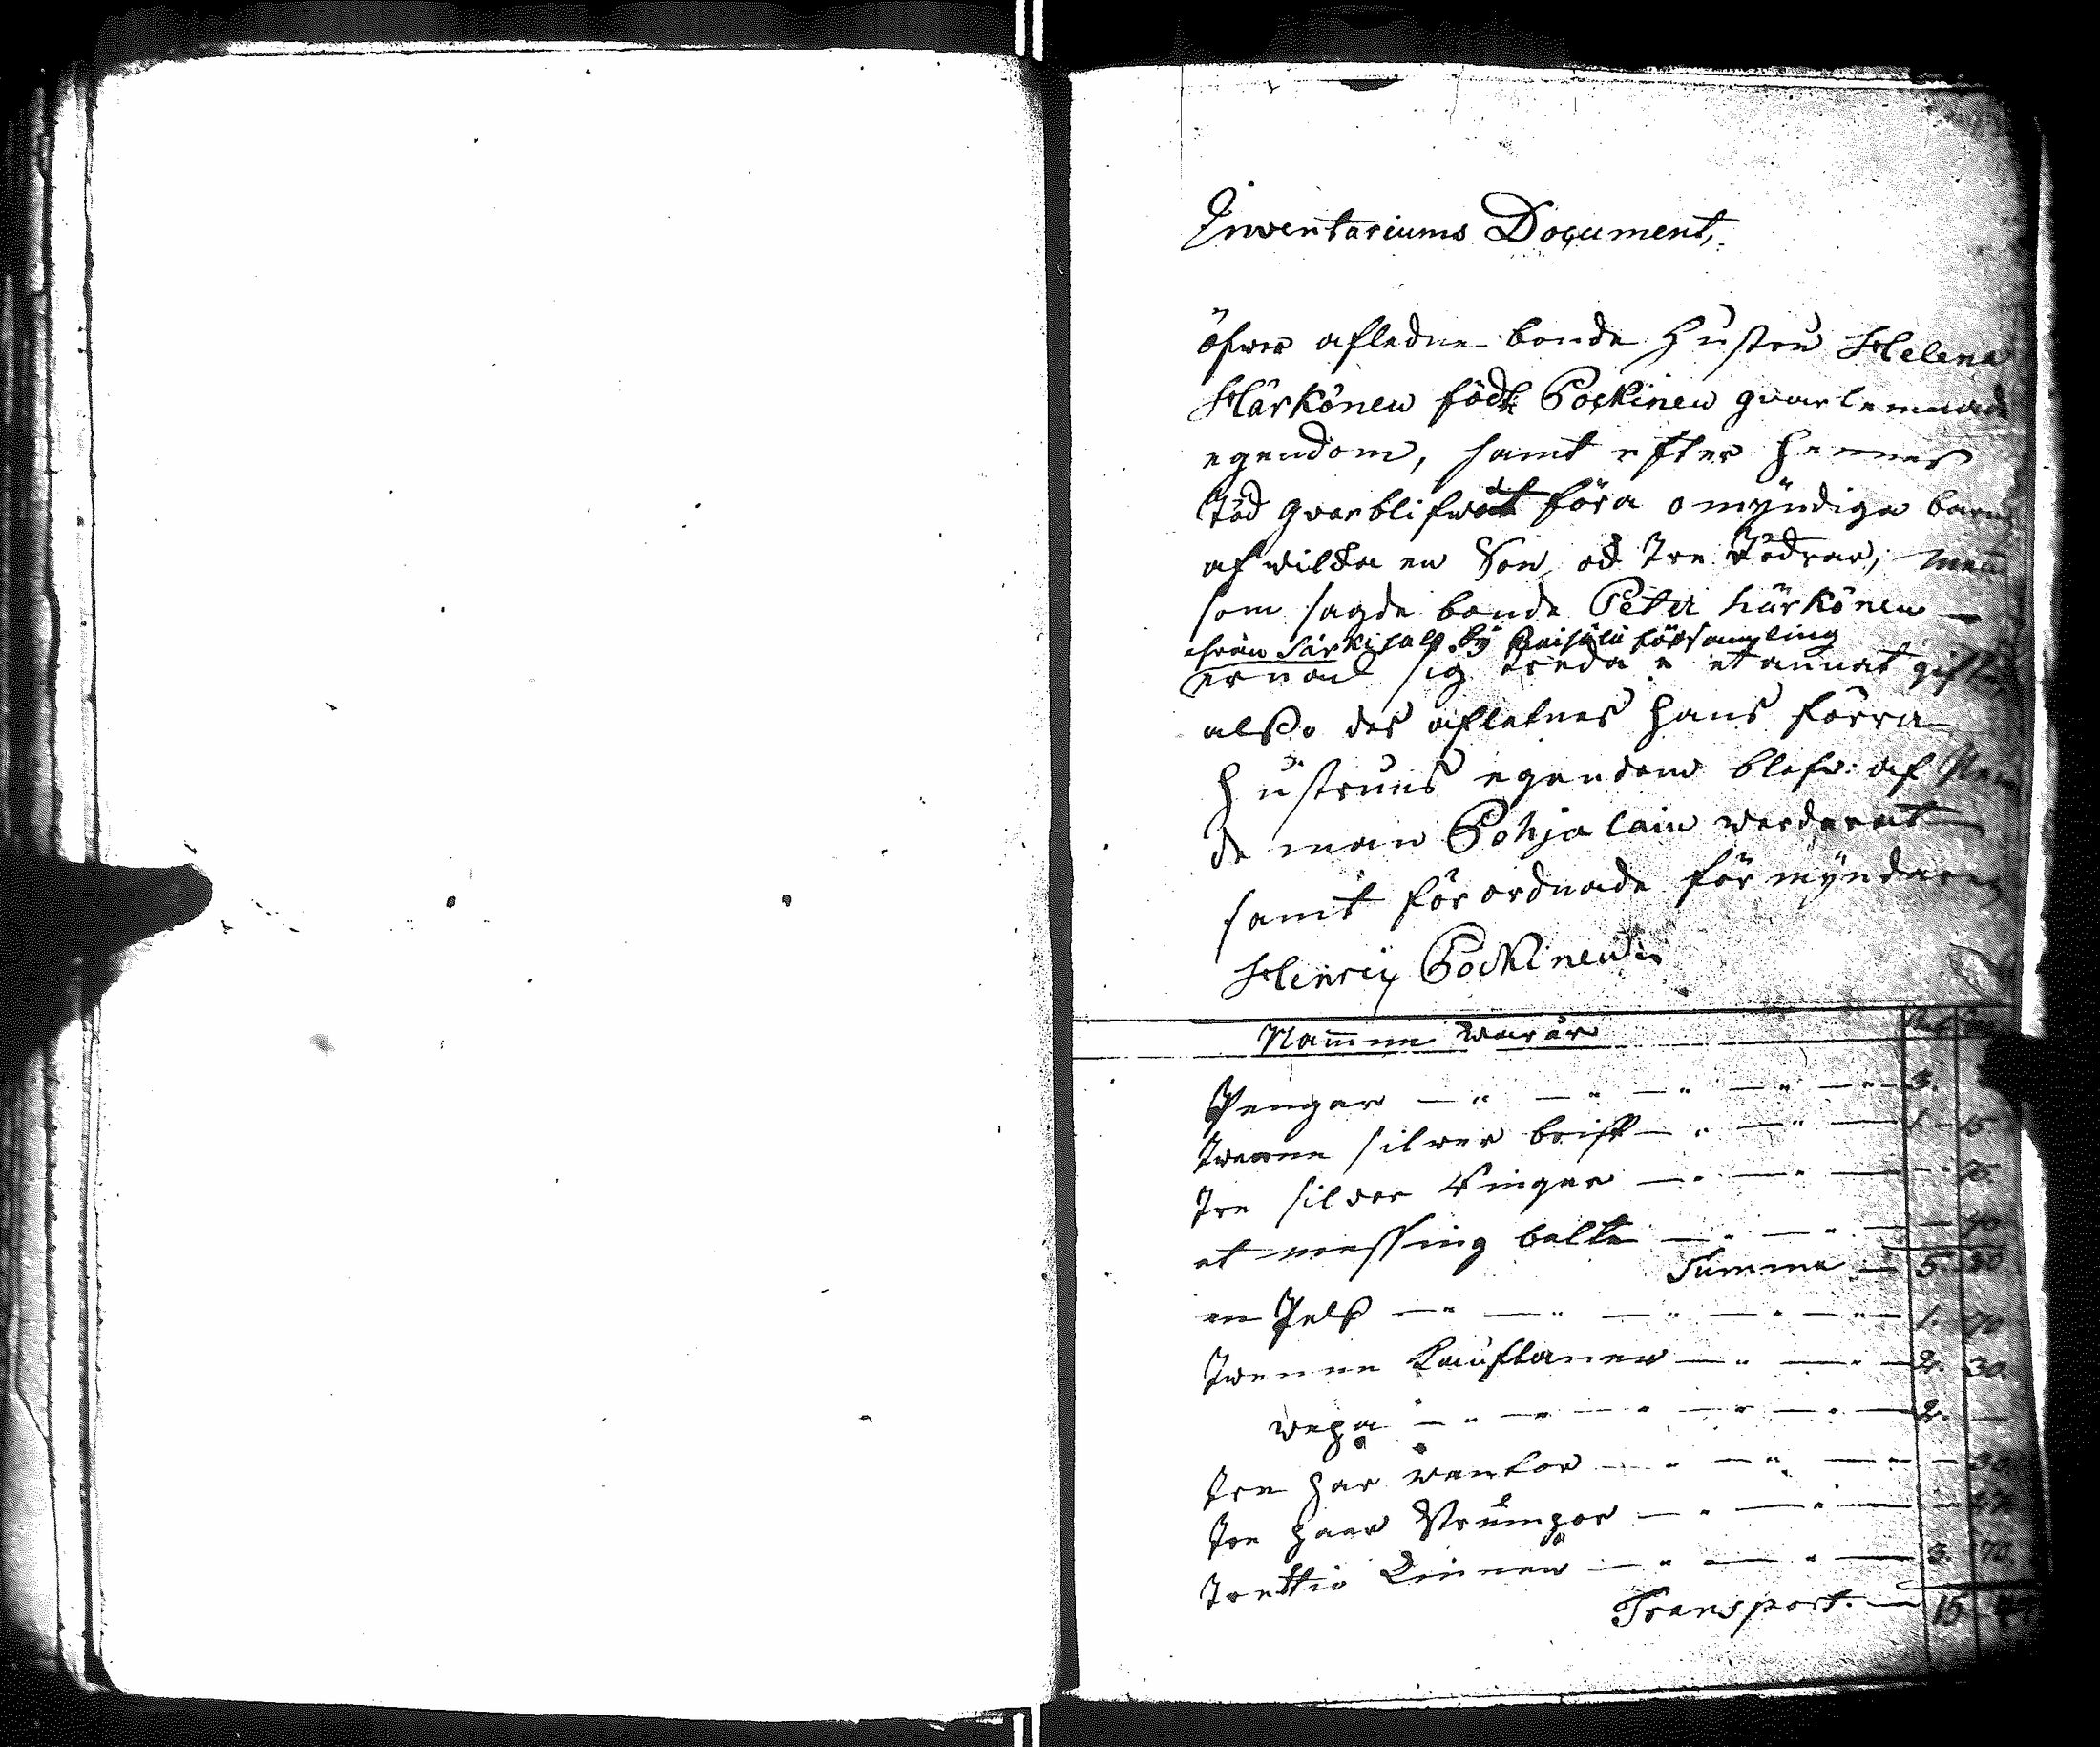 Inventariums Document,
öfwer afledne bonde hustru Helena
Härkönen född Pockinen quarlemnade
egendom, samt efter hennes
död qvarblifwit föra omyndiga barn
af wilcka en Son och tre Dödrar,
som sagde bonde Peter härkönen
från Särkisalo by Räisälä församling
ernad sig treda i et annat gifte,
alßo des afletnes hans förra
hustrus egendom blefw: af
de man Pohjalain werderat
samt förordnade förmyndaren
Henrix Pockinen
Namnen war är
Pengar 3.
twenne silwer brisk 1 15
tre silver Ringar
et messing belte
Summa 5. 80
en Pelß 1. 70
twenne Kauftaner 2. 30
wepa 2.
tre par wantor 30
tre paar Strumpor 27
trettio Linnen 3. 70
Transport. 15